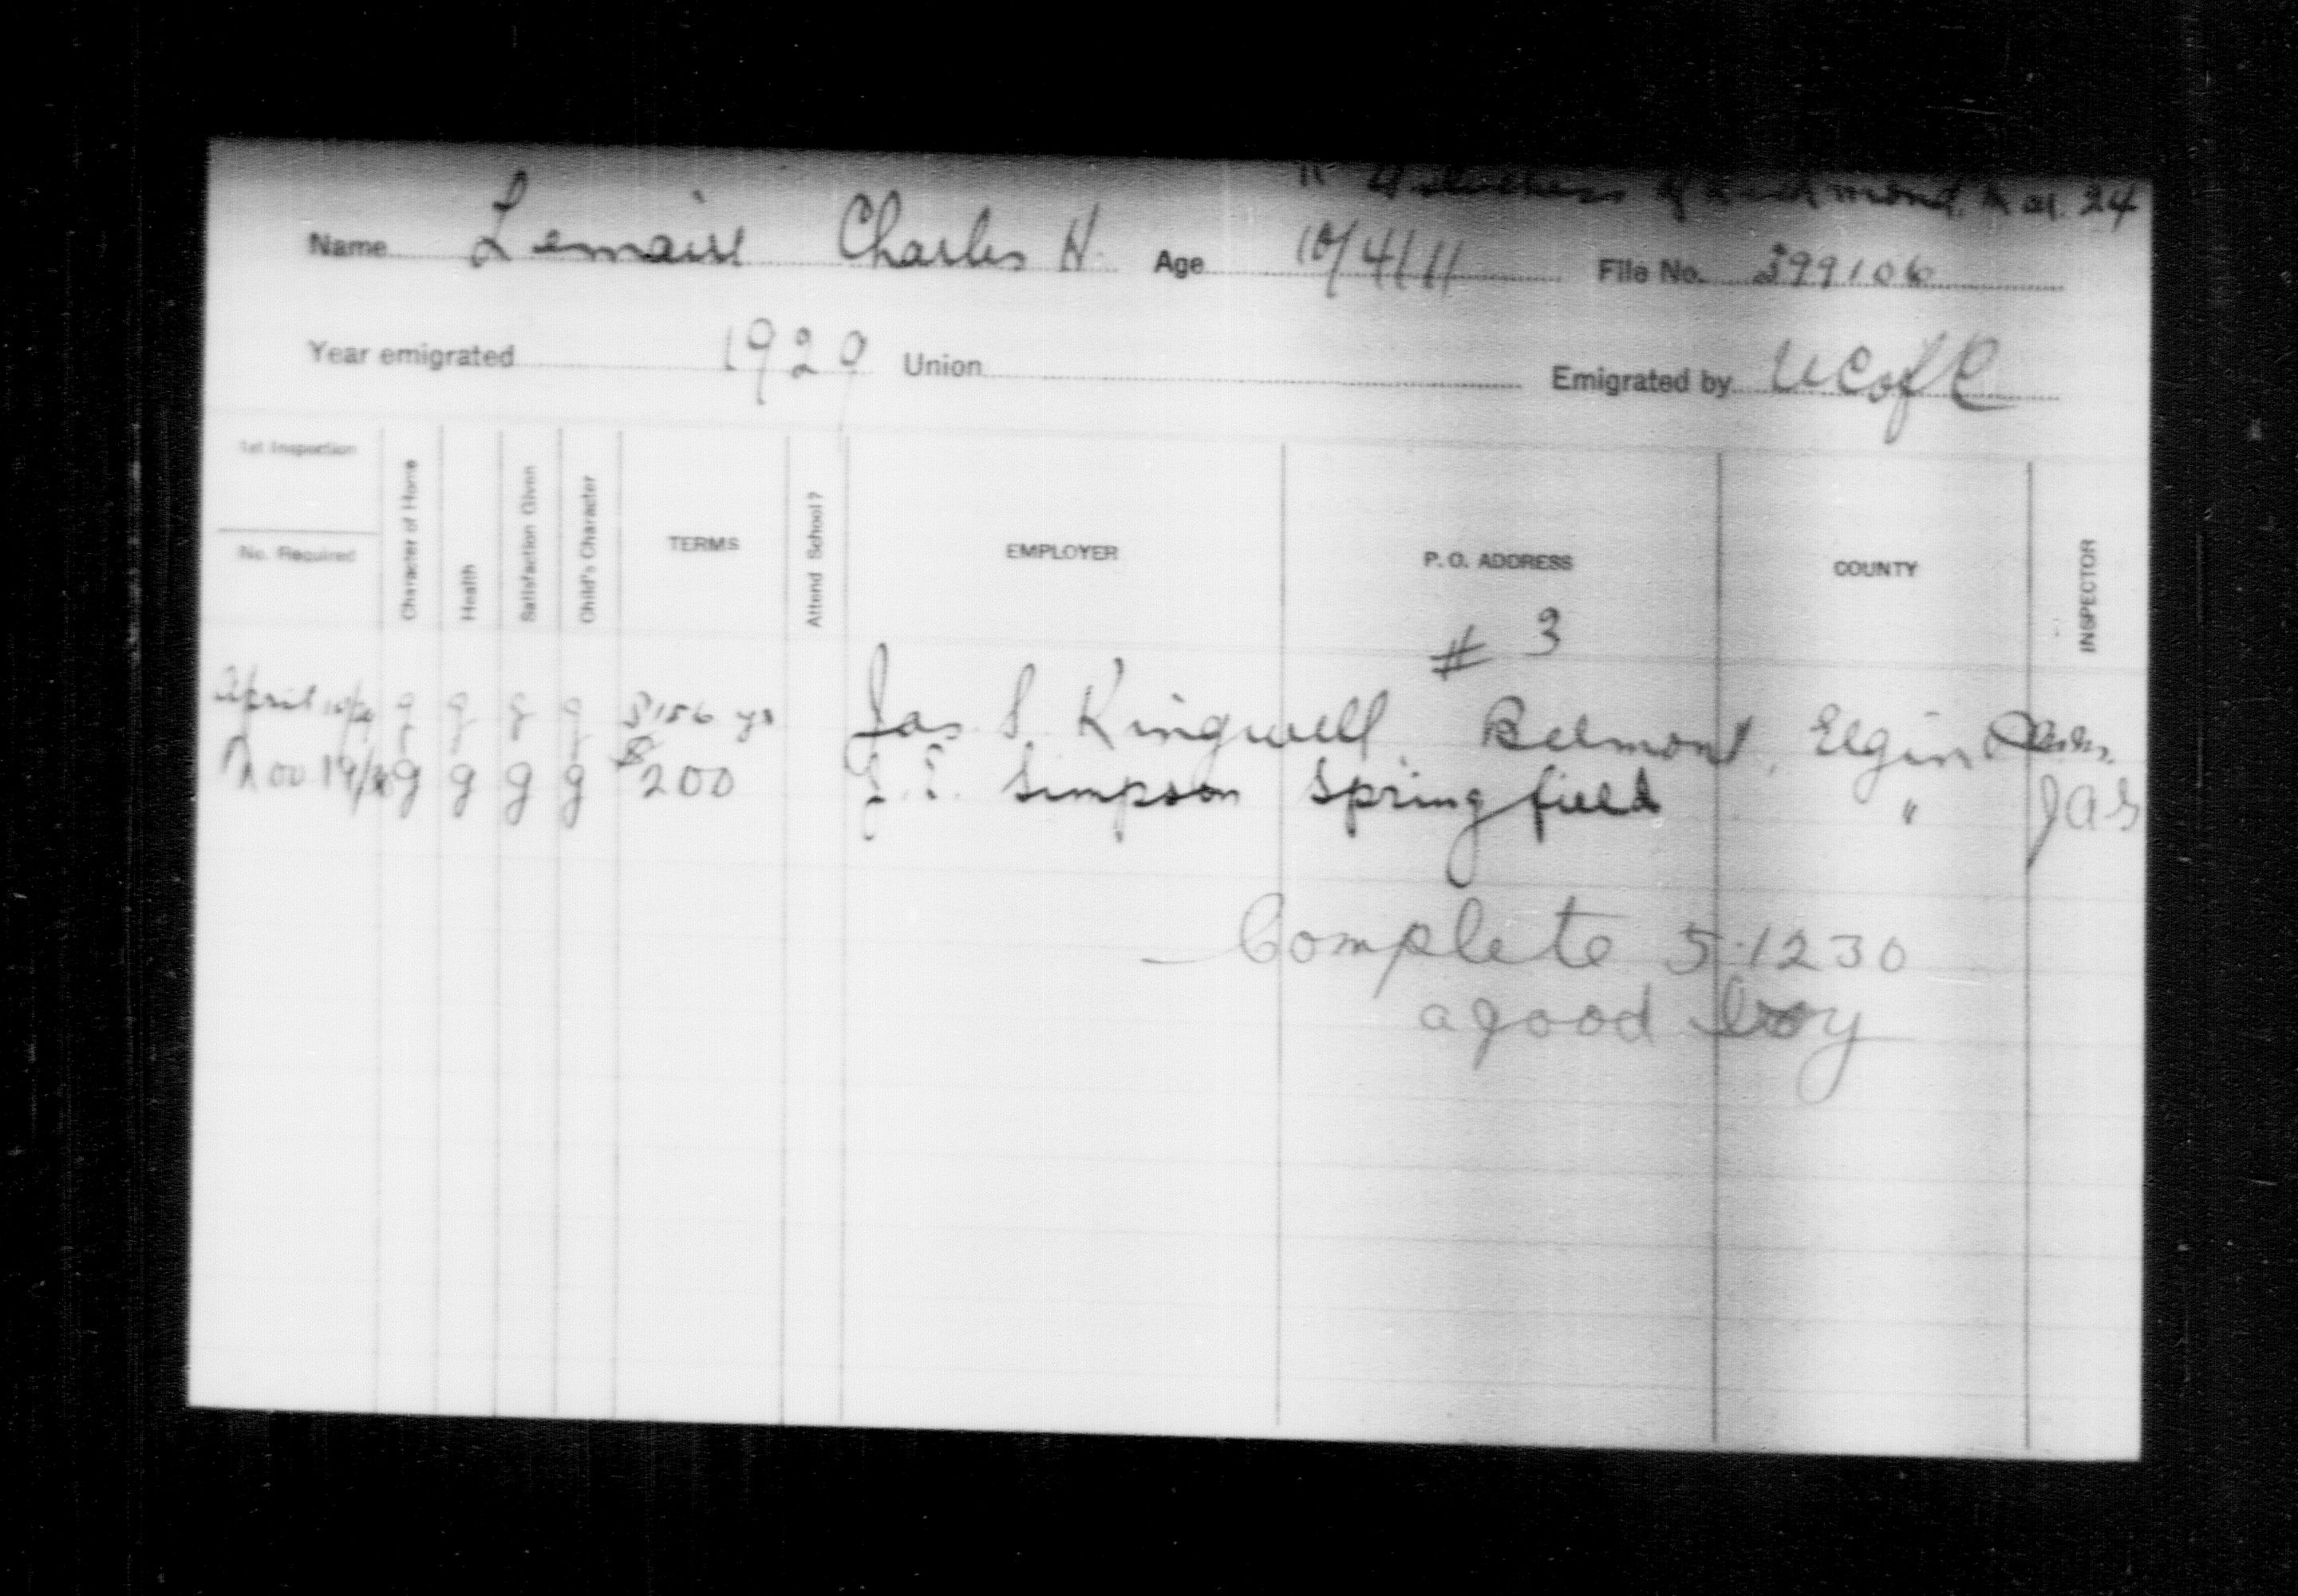 Duchess of Richmond, Mar. 24
Name Lemaire Charles H. Age 10/4/11 File No. 399106
Year emigrated 1929 Union Emigrated by UCofC
1st Inspection
No. Required
Character of Home
Health
Satisfaction Given
Child's Character
TERMS
Attend School?
EMPLOYER
P. O. ADDRESS
COUNTY
INSPECTOR
# 3
April g g g g $156 yr Jas. S. Kingwell, Belmont, Elgin
Nov 19/ g g g g $200 Simpson Springfield " JAS
Complete 5.12 30
a good boy